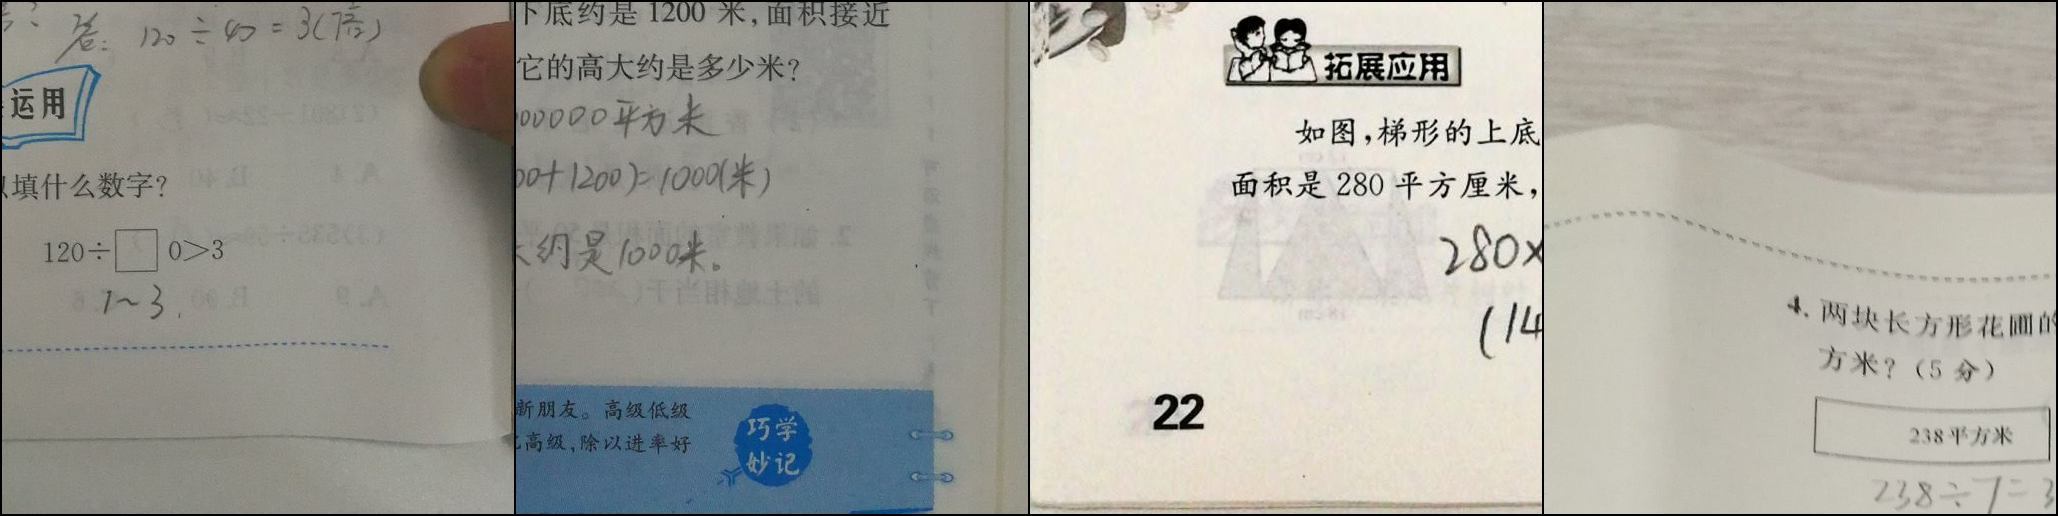 答: 120÷40=3(倍)
运用
填什么数字?
120÷□0>3
1~3.
下底约是1200米,面积接近
它的高大约是多少米?
00000平方米
00+1200)=1000(米)
大约是1000米。
新朋友。高级低级
高级,除以进率好
巧学
妙记
拓展应用
如图,梯形的上底
面积是280平方厘米,
280×
(14
22
4. 两块长方形花圃的
方米?(5分)
238平方米
238÷7=3